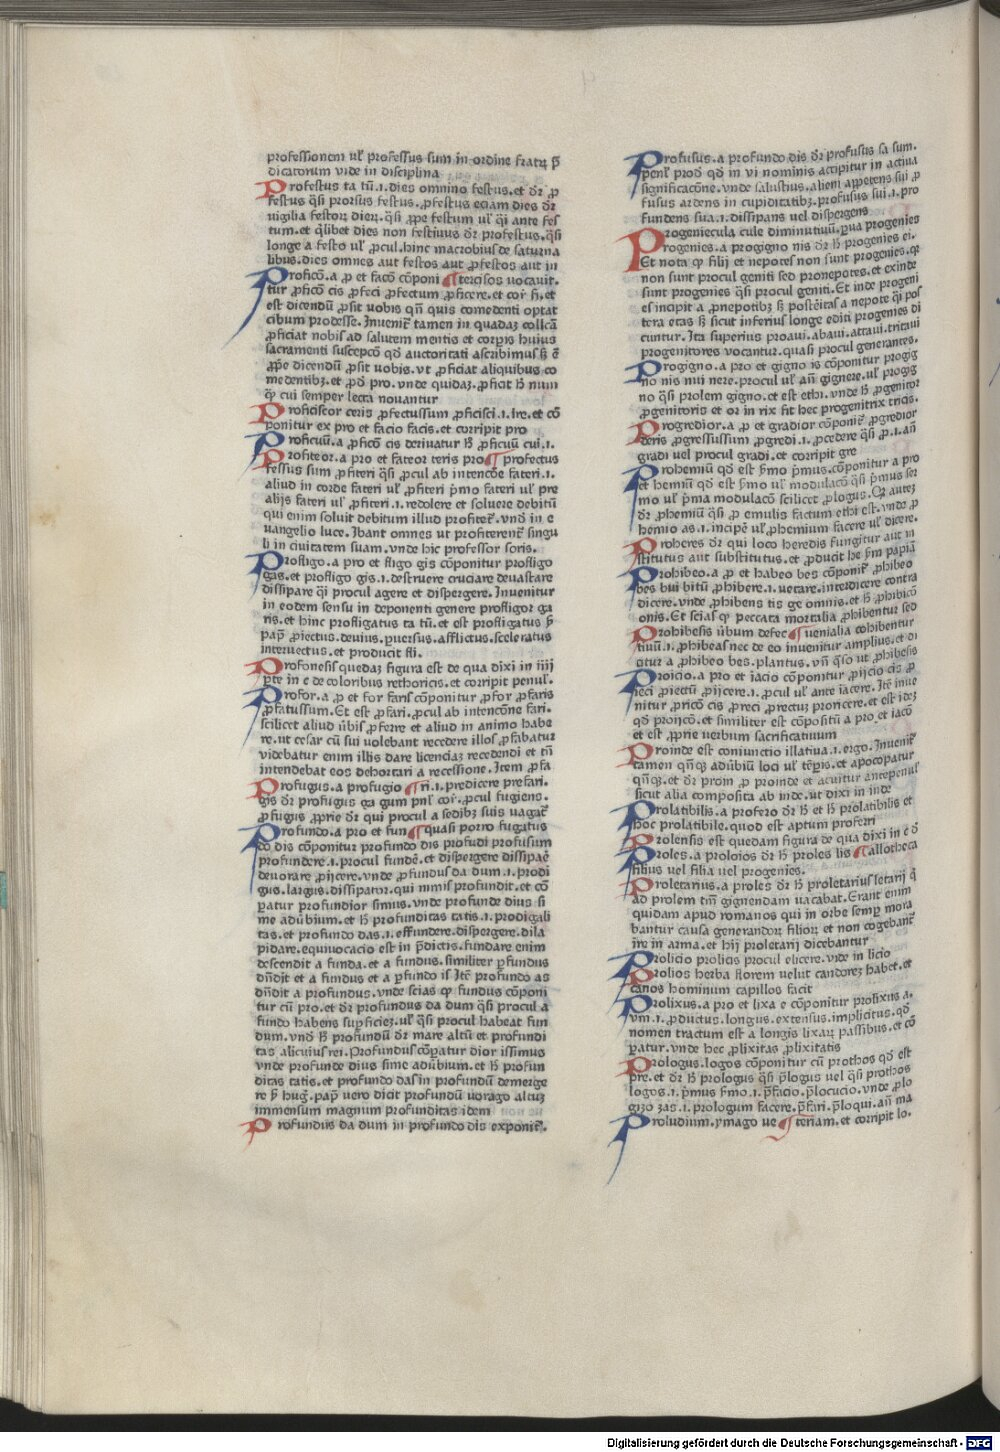 professionem ul' professus sum in ordine fratꝝ p̄
dicatorum vide in disciplina
Profestus ta tū.i.dies omnino festus.et dr̄ ꝓ
festus q̄si prorsus festus.ꝓfestus eciam dies dr̄
uigilia festoꝝ dierꝝ.q̄si ꝓpe festum ul' q̄i ante fes
tum.et q̄libet dies non festiuus dr̄ profestus.q̄si
longe a festo ul' ꝓcul.hinc macrobius de saturna
libus.dies omnes aut festos aut ꝓfestos aut in
Proficō.a ꝓ et facō cōponi ¶tercisos vocauit.
tur ꝓficō cis ꝓfeci ꝓfectum ꝓficere.et cor̄ fi.et
est dicendū ꝓsit uobis qn̄ quis comedenti optat
cibum prodesse.Inuenit̄ tamen in quadaꝫ collcā
ꝓficiat nobis ad salutem mentis et corꝑis huius
sacramenti susceptō qd̄ auctoritati ascribimus ſꝫ ē
ꝓpe dicendū ꝓsit uobis.vt ꝓficiat aliquibus co
medentibꝫ.et ꝓd̄ pro.vnde quidaꝫ.ꝓficit h̄ num
ꝙ cui semper lecta nouantur
Proficiscor ceris ꝓfectussum ꝓficisci.i.ire.et cō
ponitur ex pro et facio facis.et corripit pro
Proficuū.a ꝓficō cis deriuatur h̄ ꝓficuū cui.i.
Profiteor.a pro et fateor teris pro ¶profectus
fessus sum ꝓfiteri q̄si ꝓcul ab intencōne fateri.i.
aliud in corde fateri ul' ꝓfiteri p̄mo fateri ul' pre
alijs fateri ul' ꝓfiteri.i.redolere et soluere debitū
qui enim soluit debitum illud profitet̄.vnd̄ in e
uangelio luce.Ibant omnes ut profiterent̄ singu
li in ciuitatem suam.vnde hic professor soris.
Profligo.a pro et fligo gis cōponitur profligo
gas.et profligo gis.i.destruere cruciare deuastare
dissipare q̄i procul agere et dispergere.Inuenitur
in eodem sensu in deponenti genere profligor ga
ris.et hinc profligatus ta tū.et est profligatus ẜ
pap̄ ꝓiectus.deuius.ꝑuersus.afflictus.sceleratus
interuectus.et producit fli.
Profonesis quedaꝫ figura est de qua dixi in iiij
ꝑte in e de coloribus rethoricis.et corripit penul'.
Profor.a ꝓ et for faris cōponitur ꝓfor ꝓfaris
ꝓfatussum.Et est ꝓfari.ꝓcul ab intencōne fari.
scilicet aliud ūbis ꝓferre et aliud in animo habe
re.ut cesar cū sui uolebant recedere illos ꝓfabatur
videbatur enim illis dare licenciaꝫ recedendi et tn̄
intendebat eos dehortari a recessione.Item ꝓfa
Profugus.a profugio ¶ri.i.predicere prefari.
gis dr̄ profugus ga gum pnl' cor̄.ꝓcul fugiens.
ꝓfugus ꝓprie dr̄ qui procul a sedibꝫ suis vagat̄
Profundo.a pro et fun ¶quasi porro fugatus
do dis cōponitur profundo dis profudi profusum
profundere.i.procul fundē.et dispergere dissipaē
deuorare ꝓijcere.vnde ꝓfundus da dum.i.prodi
gus.largus.dissipator.qui nimis profundit.et cō
ꝑatur profundior simus.vnde profunde dius si
me adūbium.et h̄ profunditas tatis.i.prodigali
tas.et profundo das.i.effundere.dispergere.dila
pidare.equiuocacio est in p̄dictis.fundare enim
descendit a funda.et a fundus.similiter ꝓfundus
dn̄dit et a fundus et a ꝓfundo is Itē profundo as
dn̄dit a profundus.vnde scias ꝙ fundus cōponi
tur cū pro.et dr̄ profundus da dum q̄si procul a
fundo habens suꝑficieꝫ.ul' q̄si procul habeat fun
dum.vnd̄ h̄ profundū dr̄ mare altū et profundi
tas alicuius rei.Profundus cōꝑatur dior issimus
vnde profunde dius sime adūbium.et h̄ profun
ditas tatis.et profundo das in profundū demerge
re ẜ huḡ.pap̄ vero dicit profundū uorago altuꝫ
immensum magnum profunditas idem
Profundus da dum in profundo dis exponit̄.
Profusus.a profundo dis dr̄ profusus sa sum.
penl' prod̄ qd̄ in vi nominis accipitur in actiua
significacōne.vnde salustius.alieni appetens sui ꝓ
fusus ardens in cupiditatibꝫ.profusus sui.i.pro
fundens sua.i.dissipans vel dispergens
Progeniecula cule diminutiuū.ꝑua progenies
Progenies.a progigno nis dr̄ h̄ progenies ei.
Et nota ꝙ filij et nepotes non sunt progenies.q̄
non sunt procul geniti sed pronepotes.et exinde
sunt progenies q̄si procul geniti.Et inde progeni
es incipit a ꝓnepotibꝫ ſꝫ posteritas a nepote q̄i pos
tera etas ſꝫ sicut inferius longe editi progenies di
cuntur.Ita superius proaui.abaui.attaui.tritaui
progenitores vocantur.quasi procul generantes.
Progigno.a pro et gigno is cōponitur progig
no nis nui nere.procul ul' an̄ gignere.ul' progig
no q̄si prolem gigno.et est ethi.vnde h̄ ꝓgenitor
ꝓgenitoris et or in rix fit hec progenitrix tricis.
Progredior.a ꝓ et gradior cōponit̄ ꝓgredior
deris ꝓgressussum ꝓgredi.i.ꝓcedere q̄si ꝓ.i.an̄
gradi vel procul gradi.et corripit gre
Prohemiū qd̄ est ẜmo p̄mus.cōponitur a pro
et hemiū qd̄ est ẜmo ul' modulacō q̄si p̄mus ser
mo ul' p̄ma modulacō scilicet ꝓlogus.Qꝛ autez
dr̄ ꝓhemiū q̄si ꝓ emulis factum ethi est.vnde ꝓ
hemio as.i.incipē ul' ꝓhemium facere ul' dicere.
Proheres dr̄ qui loco heredis fungitur aut in
stitutus aut substitutus.et ꝓducit he ẜm papiā
Prohibeo.a ꝓ et habeo bes cōponit̄ ꝓhibeo
bes bui bitū ꝓhibere.i.uetare.interdicere contra
dicere.vnde ꝓhibens tis ge omnis.et h̄ ꝓhibicō
onis.Et scias ꝙ peccata mortalia ꝓhibentur sed
Prohibesis ūbum defec ¶uenialia cohibentur
tiuū.i.ꝓhibeas nec de eo inuenitur amplius.et di
citur a ꝓhibeo bes.plantus.vn̄ q̄so ut ꝓhibesis
Proicio.a pro et iacio cōponitur ꝓijcio cis ꝓ
ieci ꝓiectū ꝓijcere.i.ꝓcul ul' ante iacere.Itē inue
nitur ꝓricō cis ꝓreci ꝓrectuꝫ proricere.et est ideꝫ
qd̄ proijcō.et similiter est cōpositū a pro et iacō
et est ꝓprie verbum sacrificatiuum
Proinde est coniunctio illatiua.i.ergo.Inuenit̄
tamen qn̄qꝫ adūbiū loci ul' tēꝑis.et apocopatur
qn̄qꝫ.et dr̄ proin ꝓ proinde et acuitur antepenul'
sicut alia composita ab inde.ut dixi in inde
Prolatibilis.a profero dr̄ h̄ et h̄ prolatibilis et
hoc prolatibile.quod est aptum proferri
Prolensis est quedam figura de qua dixi in c d̄
Proles.a proloios dr̄ h̄ proles lis ¶allotheca
filius vel filia vel progenies.
Proletarius.a proles dr̄ h̄ proletarius letarij q̄
ad prolem tm̄ gignendam uacabat.Erant enim
quidam apud romanos qui in orbe semꝑ mora
bantur causa generandoꝝ filioꝝ et non cogebant̄
ire in arma.et hij proletarij dicebantur
Prolicio prolicis procul elicere.vide in licio
Prolios herba florem velut candoreꝫ habet.et
canos hominum capillos facit
Prolixus.a pro et lixa e cōponitur prolixus a.
vm.i.ꝓductus.longus.extensus.implicitus.qd̄
nomen tractum est a longis lixaꝝ passibus.et cō
ꝑatur.vnde hec ꝓlixitas ꝓlixitatis
Prologus.logos cōponitur cū prothos qd̄ est
pre.et dr̄ h̄ prologus q̄si p̄logus vel q̄si prothos
logos.i.p̄mus ẜmo.i.p̄facio.p̄locucio.vnde ꝓlo
gizo zas.i.prologum facere.p̄fari.p̄loqui.an̄ ma
Proludium.ymago ue ¶teriam.et corripit lo.
Digitalisierung gefördert durch die Deutsche Forschungsgemeinschaft - DFG